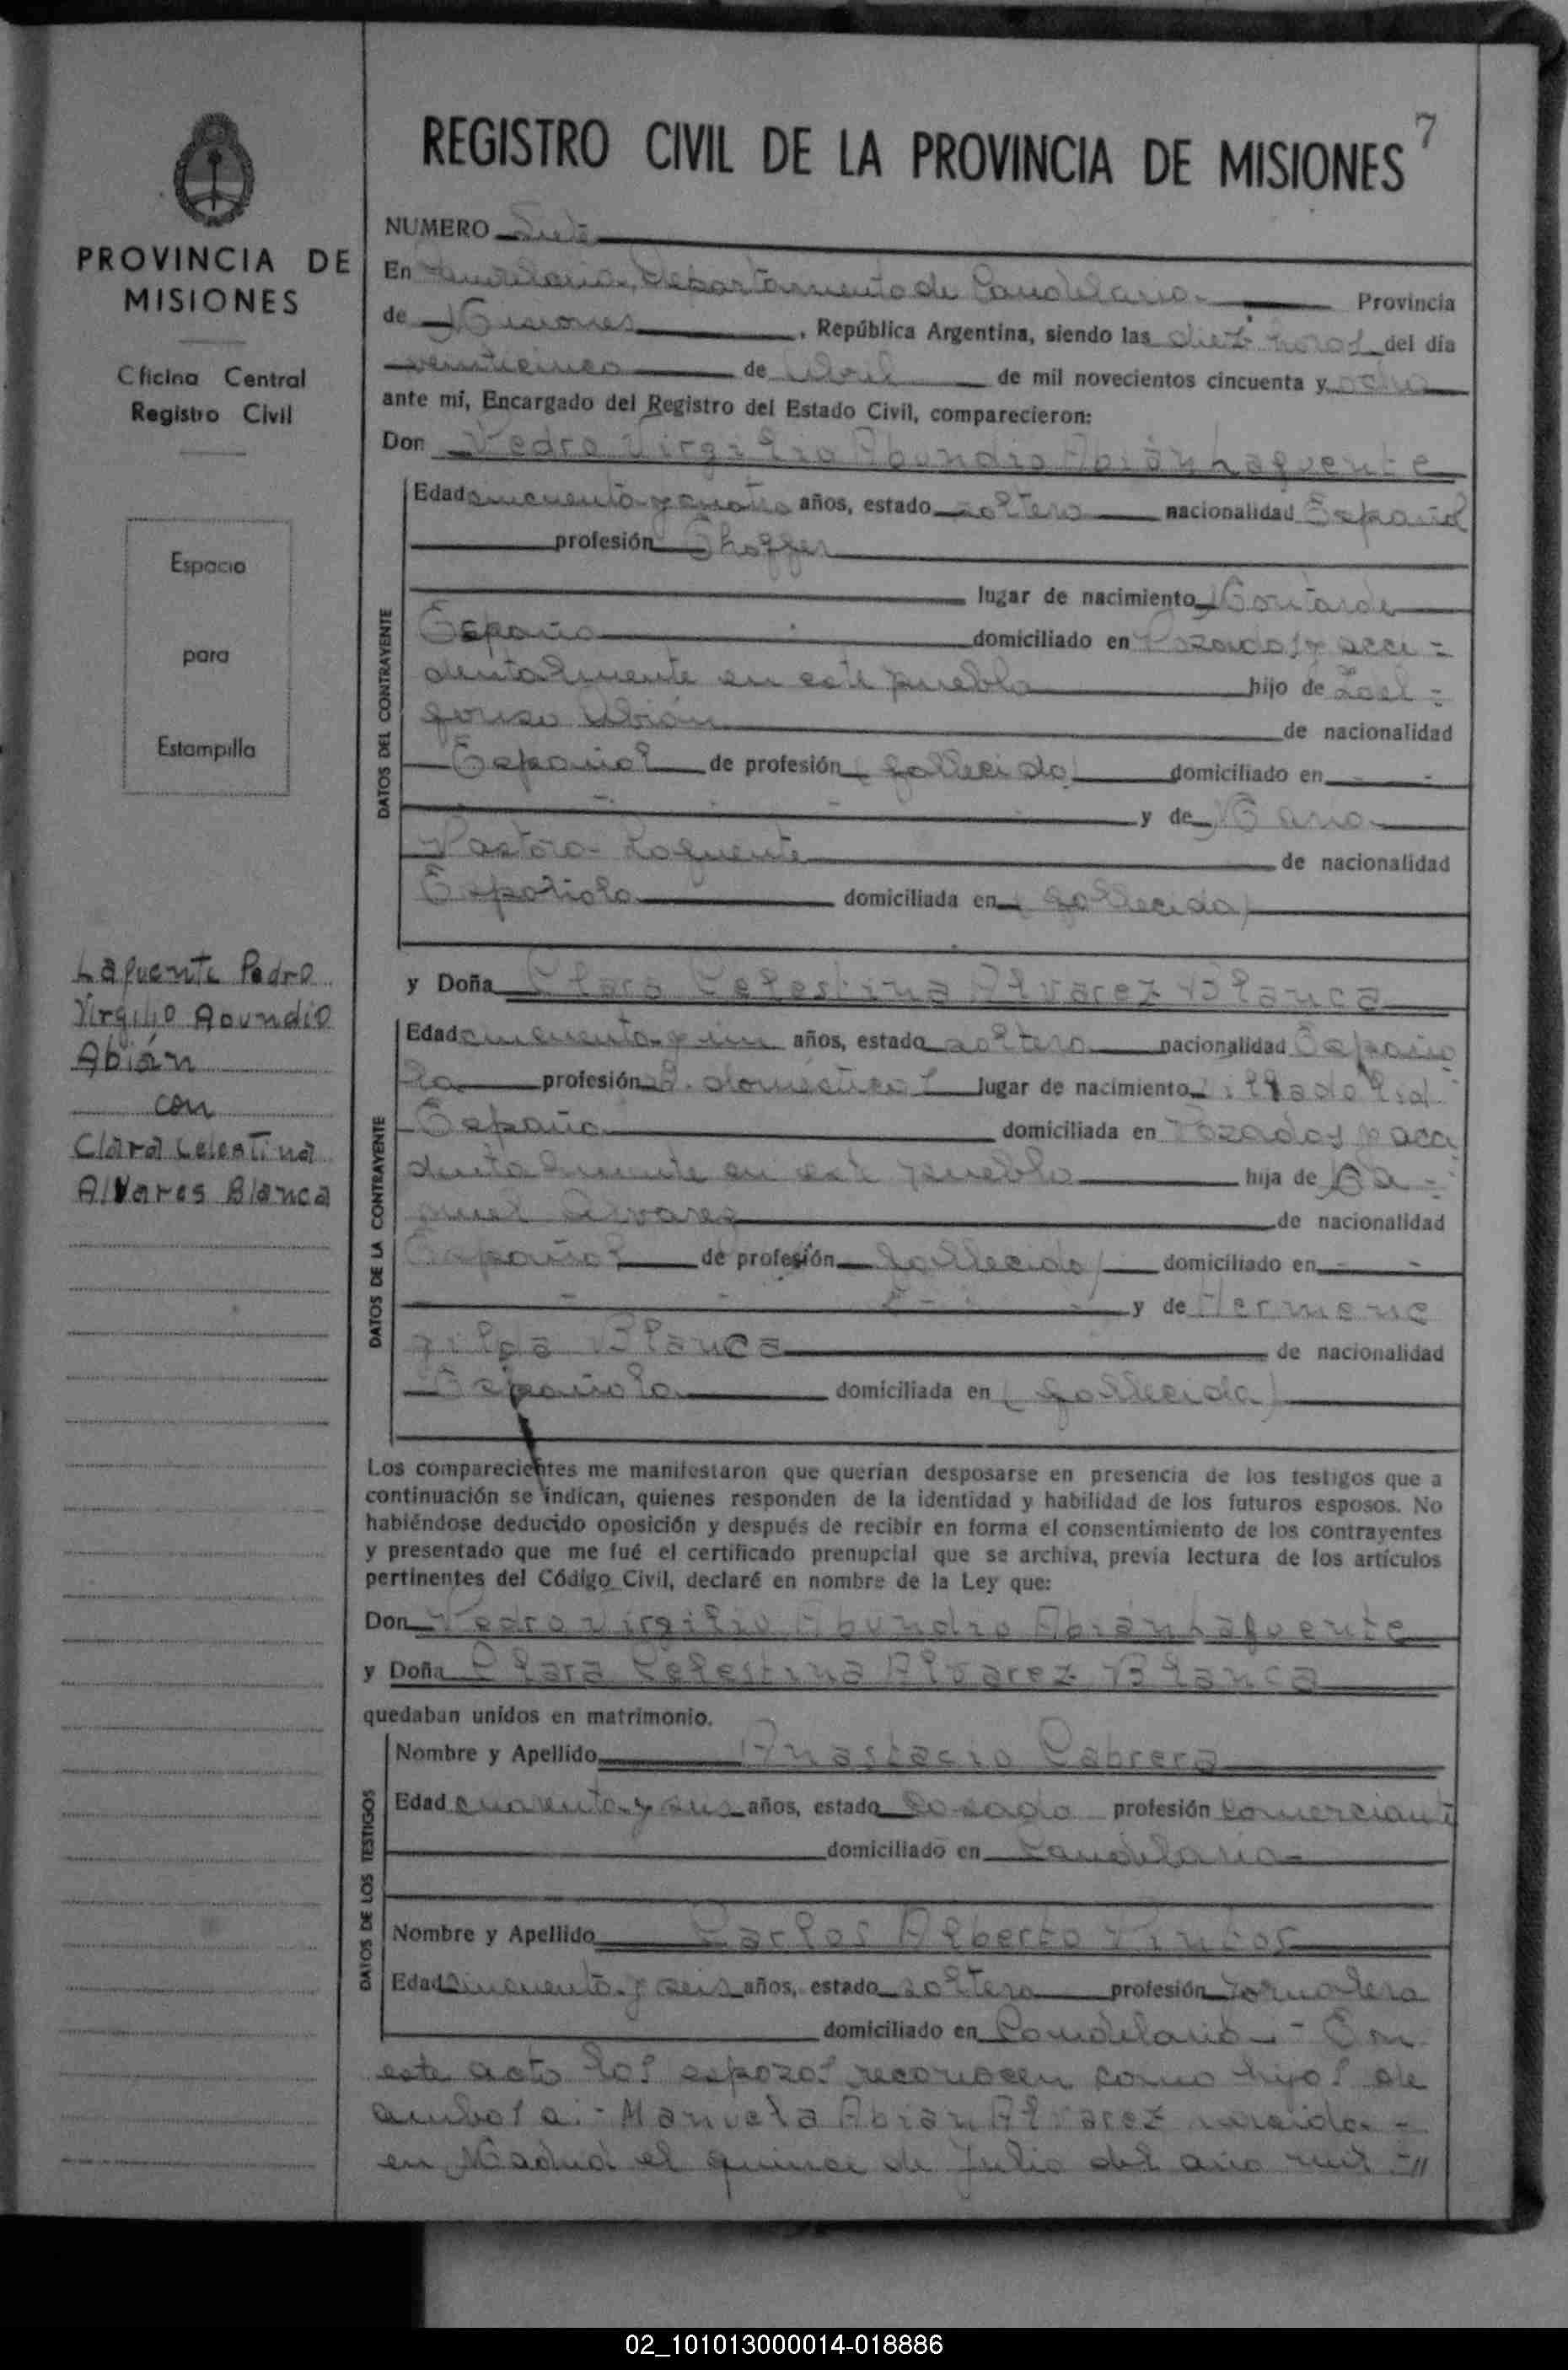 7
REGISTRO CIVIL DE LA PROVINCIA DE MISIONES
PROVINCIA DE
MISIONES
Oficina Central
Registro Civil
Espacio
para
Estampilla
Lafuente Pedro
Virgilio Abundio
Abián
con
Clara Celestina
Alvares Blanca
NUMERO Siete
En Candelaria, Departamento de Candelaria Provincia
de Misiones, República Argentina, siendo las diez horas del día
veinticinco de Abril de mil novecientos cincuenta y ocho
ante mí, Encargado del Registro del Estado Civil, comparecieron:
Don Pedro Virgilio Abundio Abián Lafuente
DATOS DEL CONTRAYENTE
Edad cincuenta y cuatro años, estado soltero nacionalidad Español
profesión Choffer
lugar de nacimiento
España domiciliado en Pozadas y acci=
dentalmente en este pueblo hijo de
Abián de nacionalidad
Español de profesión (fallecido) domiciliado en - -
y de María
Pastora Lafuente de nacionalidad
Española domiciliada en (fallecida)
y Doña Clara Celestina Alvarez Blanca
DATOS DE LA CONTRAYENTE
Edad cincuenta y un años, estado soltera nacionalidad Españo
la profesión Q. domésticos lugar de nacimiento
España domiciliada en Pozadas y acci
dentalmente en este pueblo hija de Ma-
nuel Alvarez de nacionalidad
Español de profesión (fallecido) domiciliado en - -
y de Hermene
gilda Blanca de nacionalidad
Española domiciliada en (fallecida)
Los comparecientes me manifestaron que querían desposarse en presencia de los testigos que a
continuación se indican, quienes responden de la identidad y habilidad de los futuros esposos. No
habiéndose deducido oposición y después de recibir en forma el consentimiento de los contrayentes
y presentado que me fué el certificado prenupcial que se archiva, previa lectura de los artículos
pertinentes del Código Civil, declaré en nombre de la Ley que:
Don Pedro Virgilio Abundio Abián Lafuente
y Doña Clara Celestina Alvarez Blanca
quedaban unidos en matrimonio.
DATOS DE LOS TESTIGOS
Nombre y Apellido Anastacio Cabrera
Edad cuarenta y seis años, estado casado profesión comerciante
domiciliado en Candelaria
Nombre y Apellido Carlos Alberto Pintos
Edad cincuenta y seis años, estado soltero profesión Jornalero
domiciliado en Candelaria.- En
este acto los espozos reconocen como hijos de
ambos a:- Manuela Abián Alvarez nacida -
en Madrid el quince de Julio del año mil =//
02_101013000014-018886